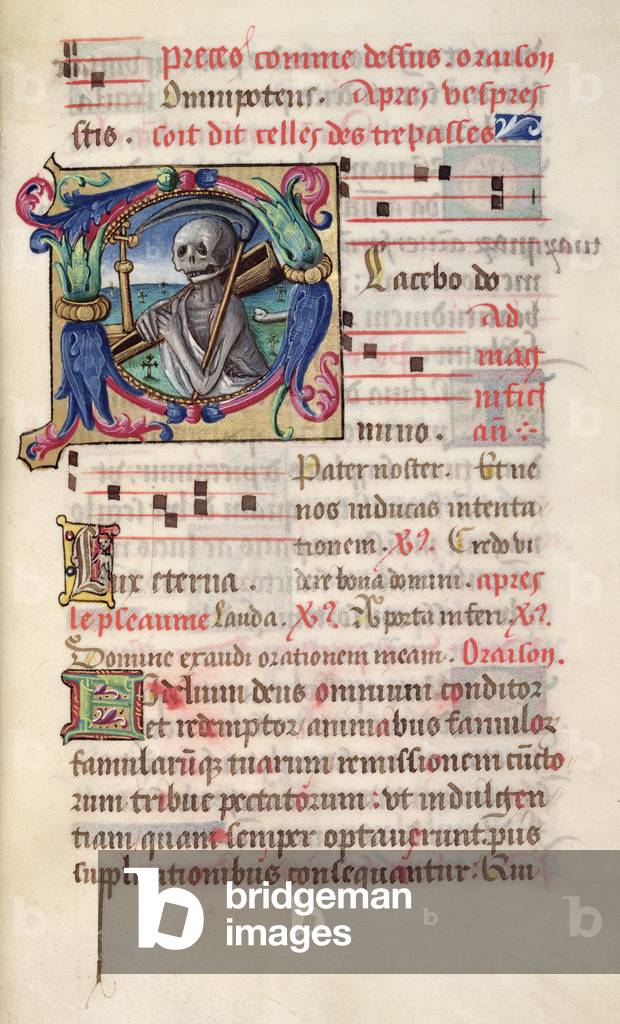 preces comme dessus. oraison
Omnipotens. Apres vespres
stis. soit dit celles des trepasses
Lacebo do
Ad
mag
nifict
mino. añ
Pater noster. Et ne
nos inducas intenta
tionem. Credo vi
Lux eterna. dere bona domini. apres
le pseaume Lauda. A porta inferi.
Domine exaudi orationem meam. Oraison.
Fidelium deus omnium conditor
et redemptor animabus famulor
famularūq tuarum remissionem cūcto
rum tribue peccatorum: vt indulgen
tiam quam semper optauerunt. pijs
supplicationibus consequantur. Qui
bridgeman
images